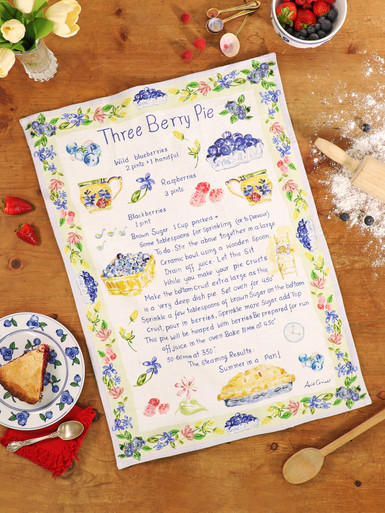 Three Berry Pie
Wild blueberries
2 pints + 1 handful
Raspberries
3 pints
Blackberries
1 pint
Brown Sugar 1 Cup packed +
Some tablespoons for sprinkling (or to flavour)
To do: Stir the above together in a large
Ceramic bowl using a wooden spoon
Drain off juice. Let this sit
While you make your pie crusts
Make the bottom crust extra large as this
is a very deep dish pie. Set oven for 450°
Sprinkle a few tablespoons of brown sugar on the bottom
crust, pour in berries, sprinkle more sugar add top
This pie will be heaped with berries Be prepared for run
off juice in the oven Bake 10 min at 450°
50-60 min at 350°
The steaming Results:
Summer in a Pan!